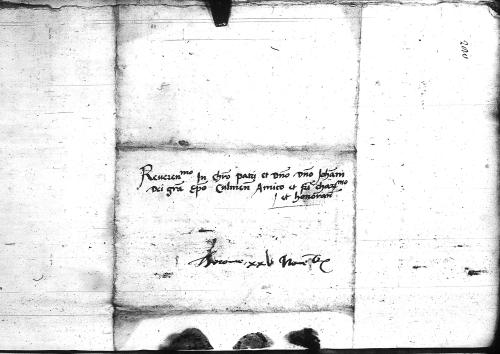 Reveren^mo In Chro patri et dno dno Johanni
Dei gra Epo Culmen Amico et fri char^mo
et honoran
xxv Novemb